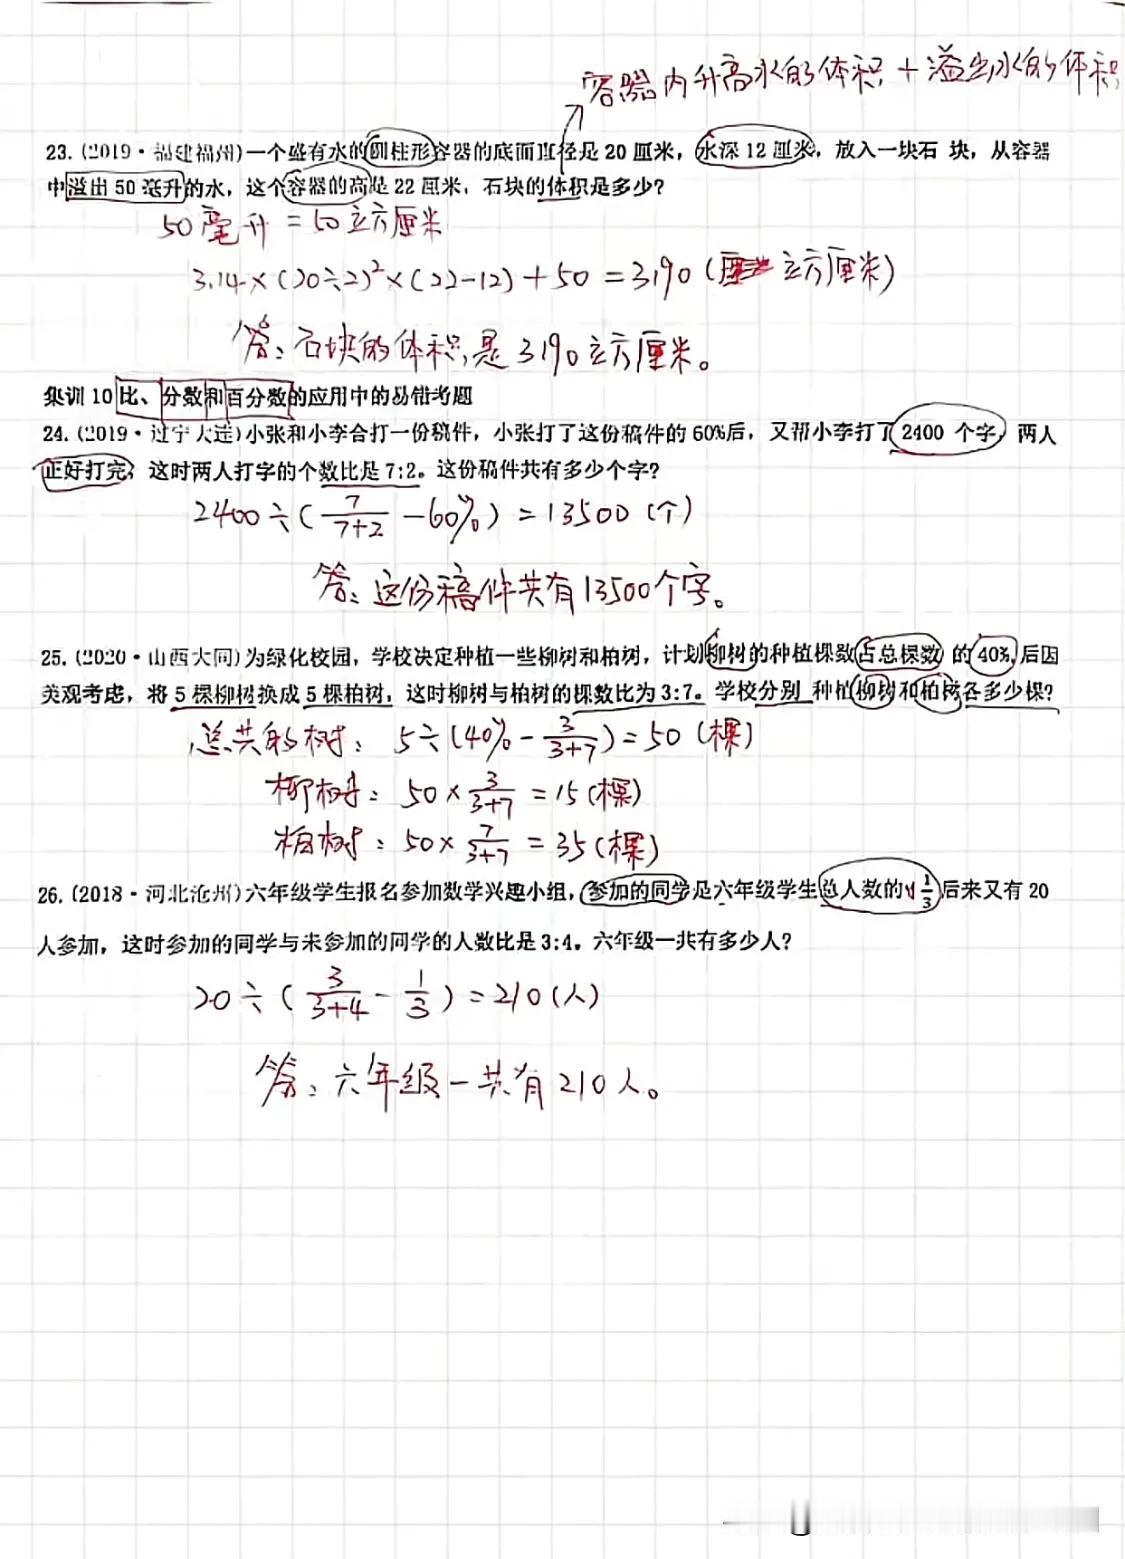 容器内升高水的体积 + 溢出水的体积
23. (2019·福建福州)一个盛有水的圆柱形容器的底面直径是 20 厘米，水深 12 厘米，放入一块石 块，从容器
中溢出 50 毫升的水，这个容器的高是 22 厘米，石块的体积是多少?
50毫升 = 50立方厘米
3.14×(20÷2)²×(22-12)+50=3190(立方厘米)
答：石块的体积是3190立方厘米。
集训 10 比、分数和百分数的应用中的易错考题
24. (2019·辽宁大连)小张和小李合打一份稿件，小张打了这份稿件的 60%后，又帮小李打了 2400 个字，两人
正好打完，这时两人打字的个数比是 7:2。这份稿件共有多少个字?
2400÷(7/(7+2)-60%)=13500(个)
答：这份稿件共有13500个字。
25. (2020·山西大同)为绿化校园，学校决定种植一些柳树和柏树，计划柳树的种植棵数占总棵数 的 40%,后因
美观考虑，将 5 棵柳树换成 5 棵柏树，这时柳树与柏树的棵数比为 3:7。学校分别 种植柳树和柏树各多少棵?
总共的树：5÷(40%-3/(3+7))=50(棵)
柳树：50×3/(3+7)=15(棵)
柏树：50×7/(3+7)=35(棵)
26. (2018·河北沧州)六年级学生报名参加数学兴趣小组，参加的同学是六年级学生总人数的 1/3 后来又有 20
人参加，这时参加的同学与未参加的同学的人数比是 3:4。六年级一共有多少人?
20÷(3/(3+4)-1/3)=210(人)
答：六年级一共有210人。